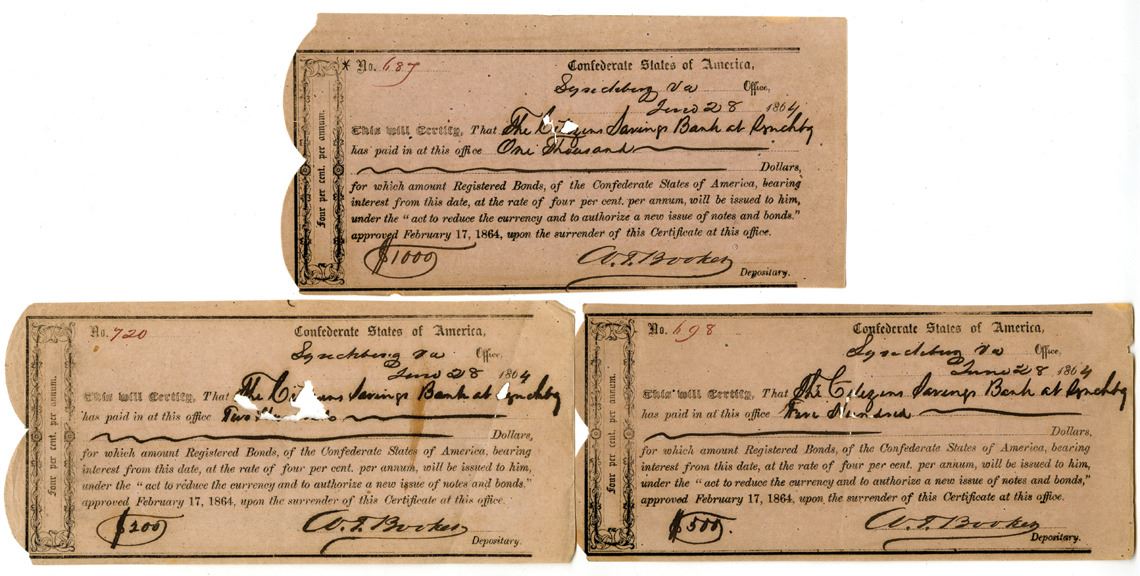 Four per cent. per annum.
* No. 687
Confederate States of America,
Lynchburg Va Office,
June 28 1864
This will Certify, That The Citizens Savings Bank at Lynchbg
has paid in at this office One Thousand
Dollars,
for which amount Registered Bonds, of the Confederate States of America, bearing
interest from this date, at the rate of four per cent. per annum, will be issued to him,
under the "act to reduce the currency and to authorize a new issue of notes and bonds."
approved February 17, 1864, upon the surrender of this Certificate at this office.
$1000
Depositary.
Four per cent. per annum.
No. 720
Confederate States of America,
Lynchburg Va Office,
June 28 1864
This will Certify, That The Citizens Savings Bank at Lynchbg
has paid in at this office Two
Dollars,
for which amount Registered Bonds, of the Confederate States of America, bearing
interest from this date, at the rate of four per cent. per annum, will be issued to him,
under the "act to reduce the currency and to authorize a new issue of notes and bonds."
approved February 17, 1864, upon the surrender of this Certificate at this office.
$200
W. T. Booker
Depositary.
Four per cent. per annum.
No. 698
Confederate States of America,
Lynchburg Va Office,
June 28 1864
This will Certify, That The Citizens Savings Bank at Lynchbg
has paid in at this office Five Hundred
Dollars,
for which amount Registered Bonds, of the Confederate States of America, bearing
interest from this date, at the rate of four per cent. per annum, will be issued to him,
under the "act to reduce the currency and to authorize a new issue of notes and bonds."
approved February 17, 1864, upon the surrender of this Certificate at this office.
$500.
W. T. Booker
Depositary.